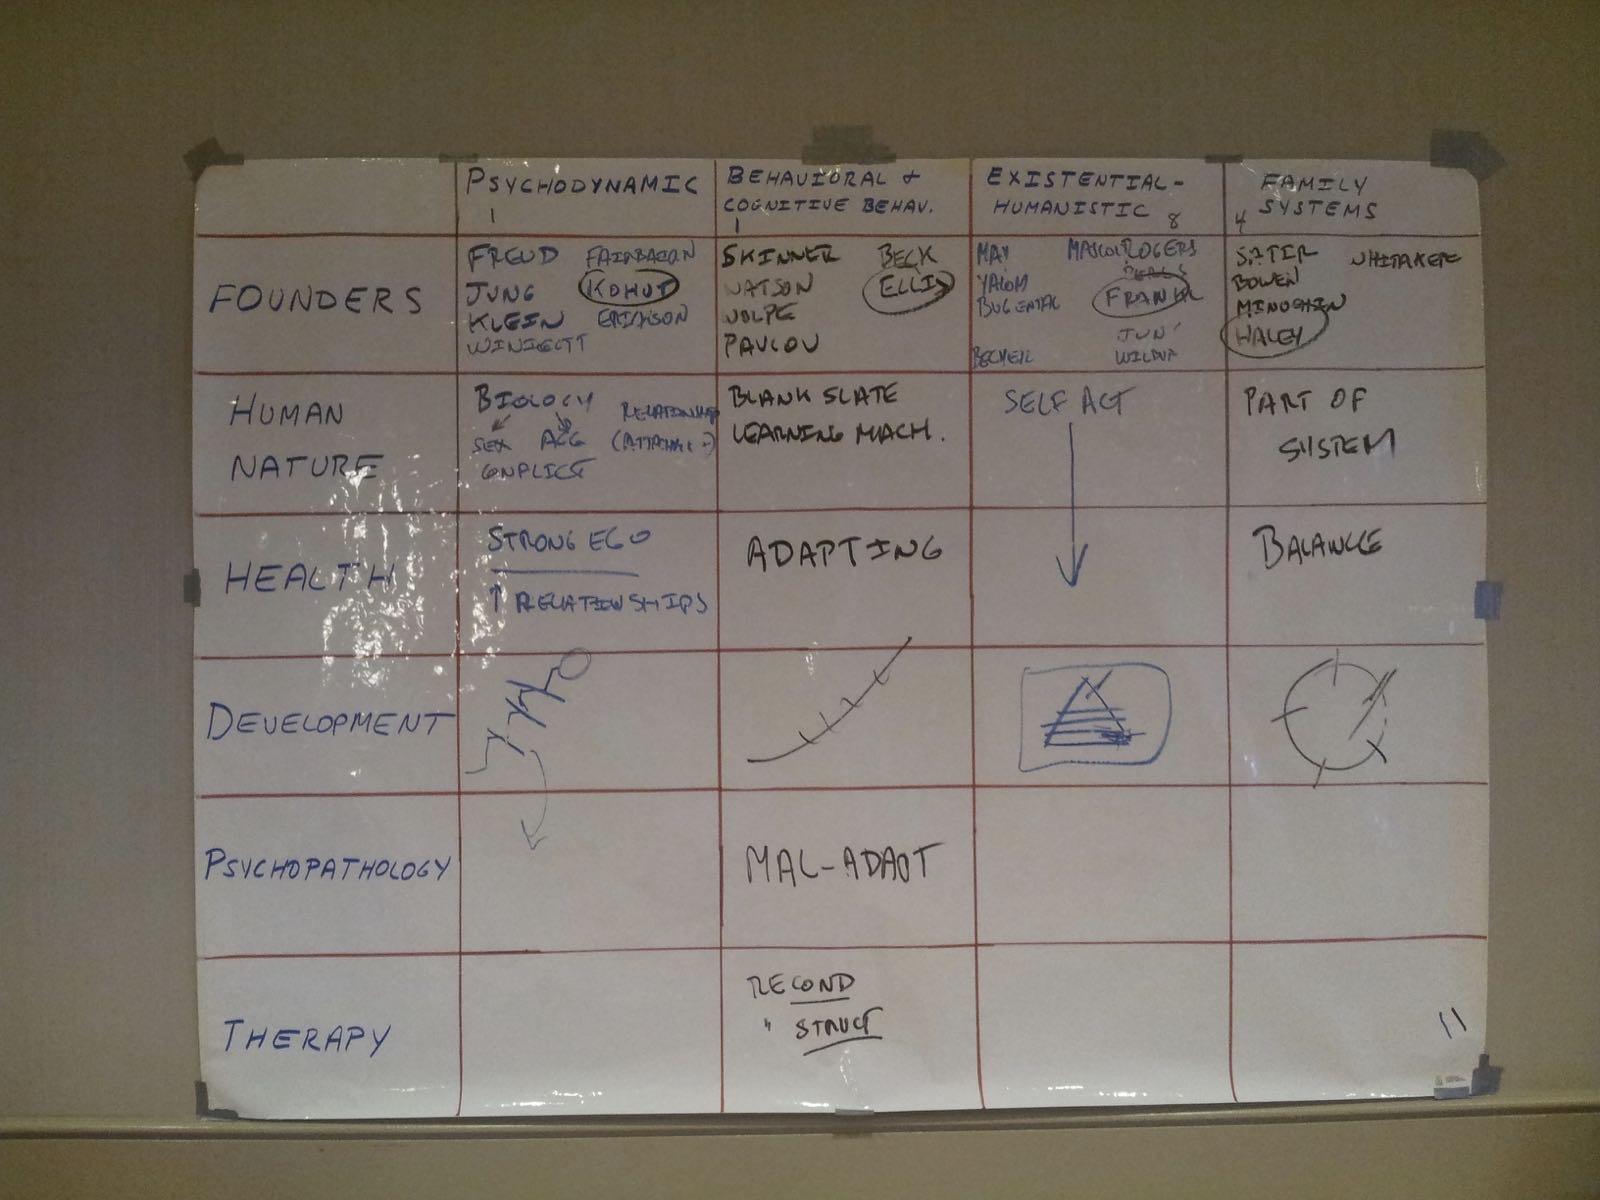 PSYCHODYNAMIC
1
BEHAVIORAL +
COGNITIVE BEHAV.
1
EXISTENTIAL-
HUMANISTIC 8
FAMILY
4 SYSTEMS
FOUNDERS
FREUD FAIRBAIRN
JUNG KOHUT
KLEIN
WINICCTT
SKINNER BECK
WATSON ELLIS
WOLPE
PAVLOV
MAY ROGERS
YALOM PERLS
BUGENTAL FRANKL
JUN
SATIR WHITAKER
BOWEN
MINUCHIN
HALEY
HUMAN
NATURE
BIOLOGY RELATIONSHIP
SEX AGG
CONFLICT
BLANK SLATE
LEARNING MACH.
SELF ACT
PART OF
SYSTEM
HEALTH
STRONG EGO
↑ RELATIONSHIPS
ADAPTING
BALANCE
DEVELOPMENT
PSYCHOPATHOLOGY
MAL-ADAPT
THERAPY
RECOND
" STRUCT
11